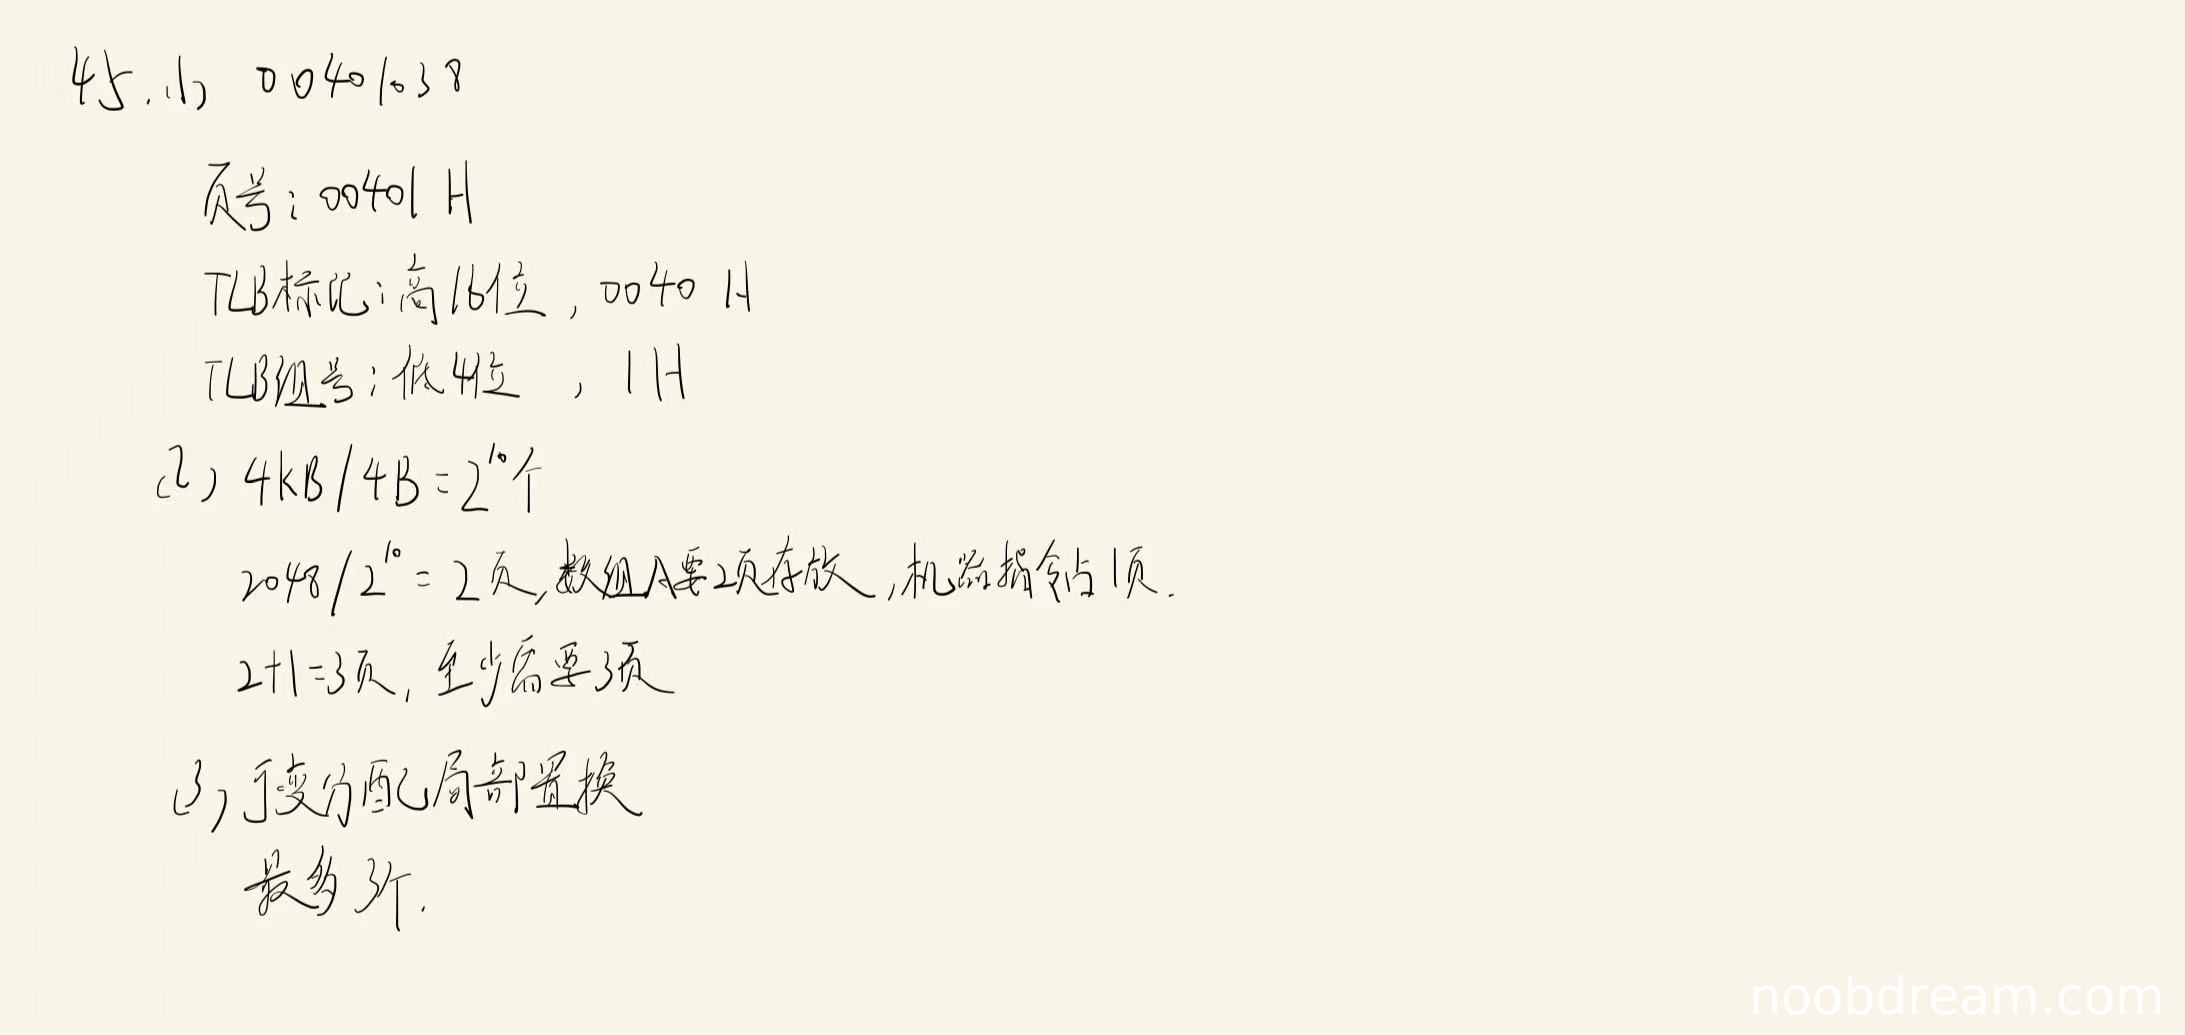 45.(1) 00401038
页号:00401 H
TLB标记:高16位,0040 H
TLB组号:低4位,1H
(2) 4kB/4B=2^10个
2048/2^10=2页,数组A要2页存放,机器指令占1页.
2+1=3页,至少需要3页
(3) 可变分配局部置换
最多3个.
noobdream.com